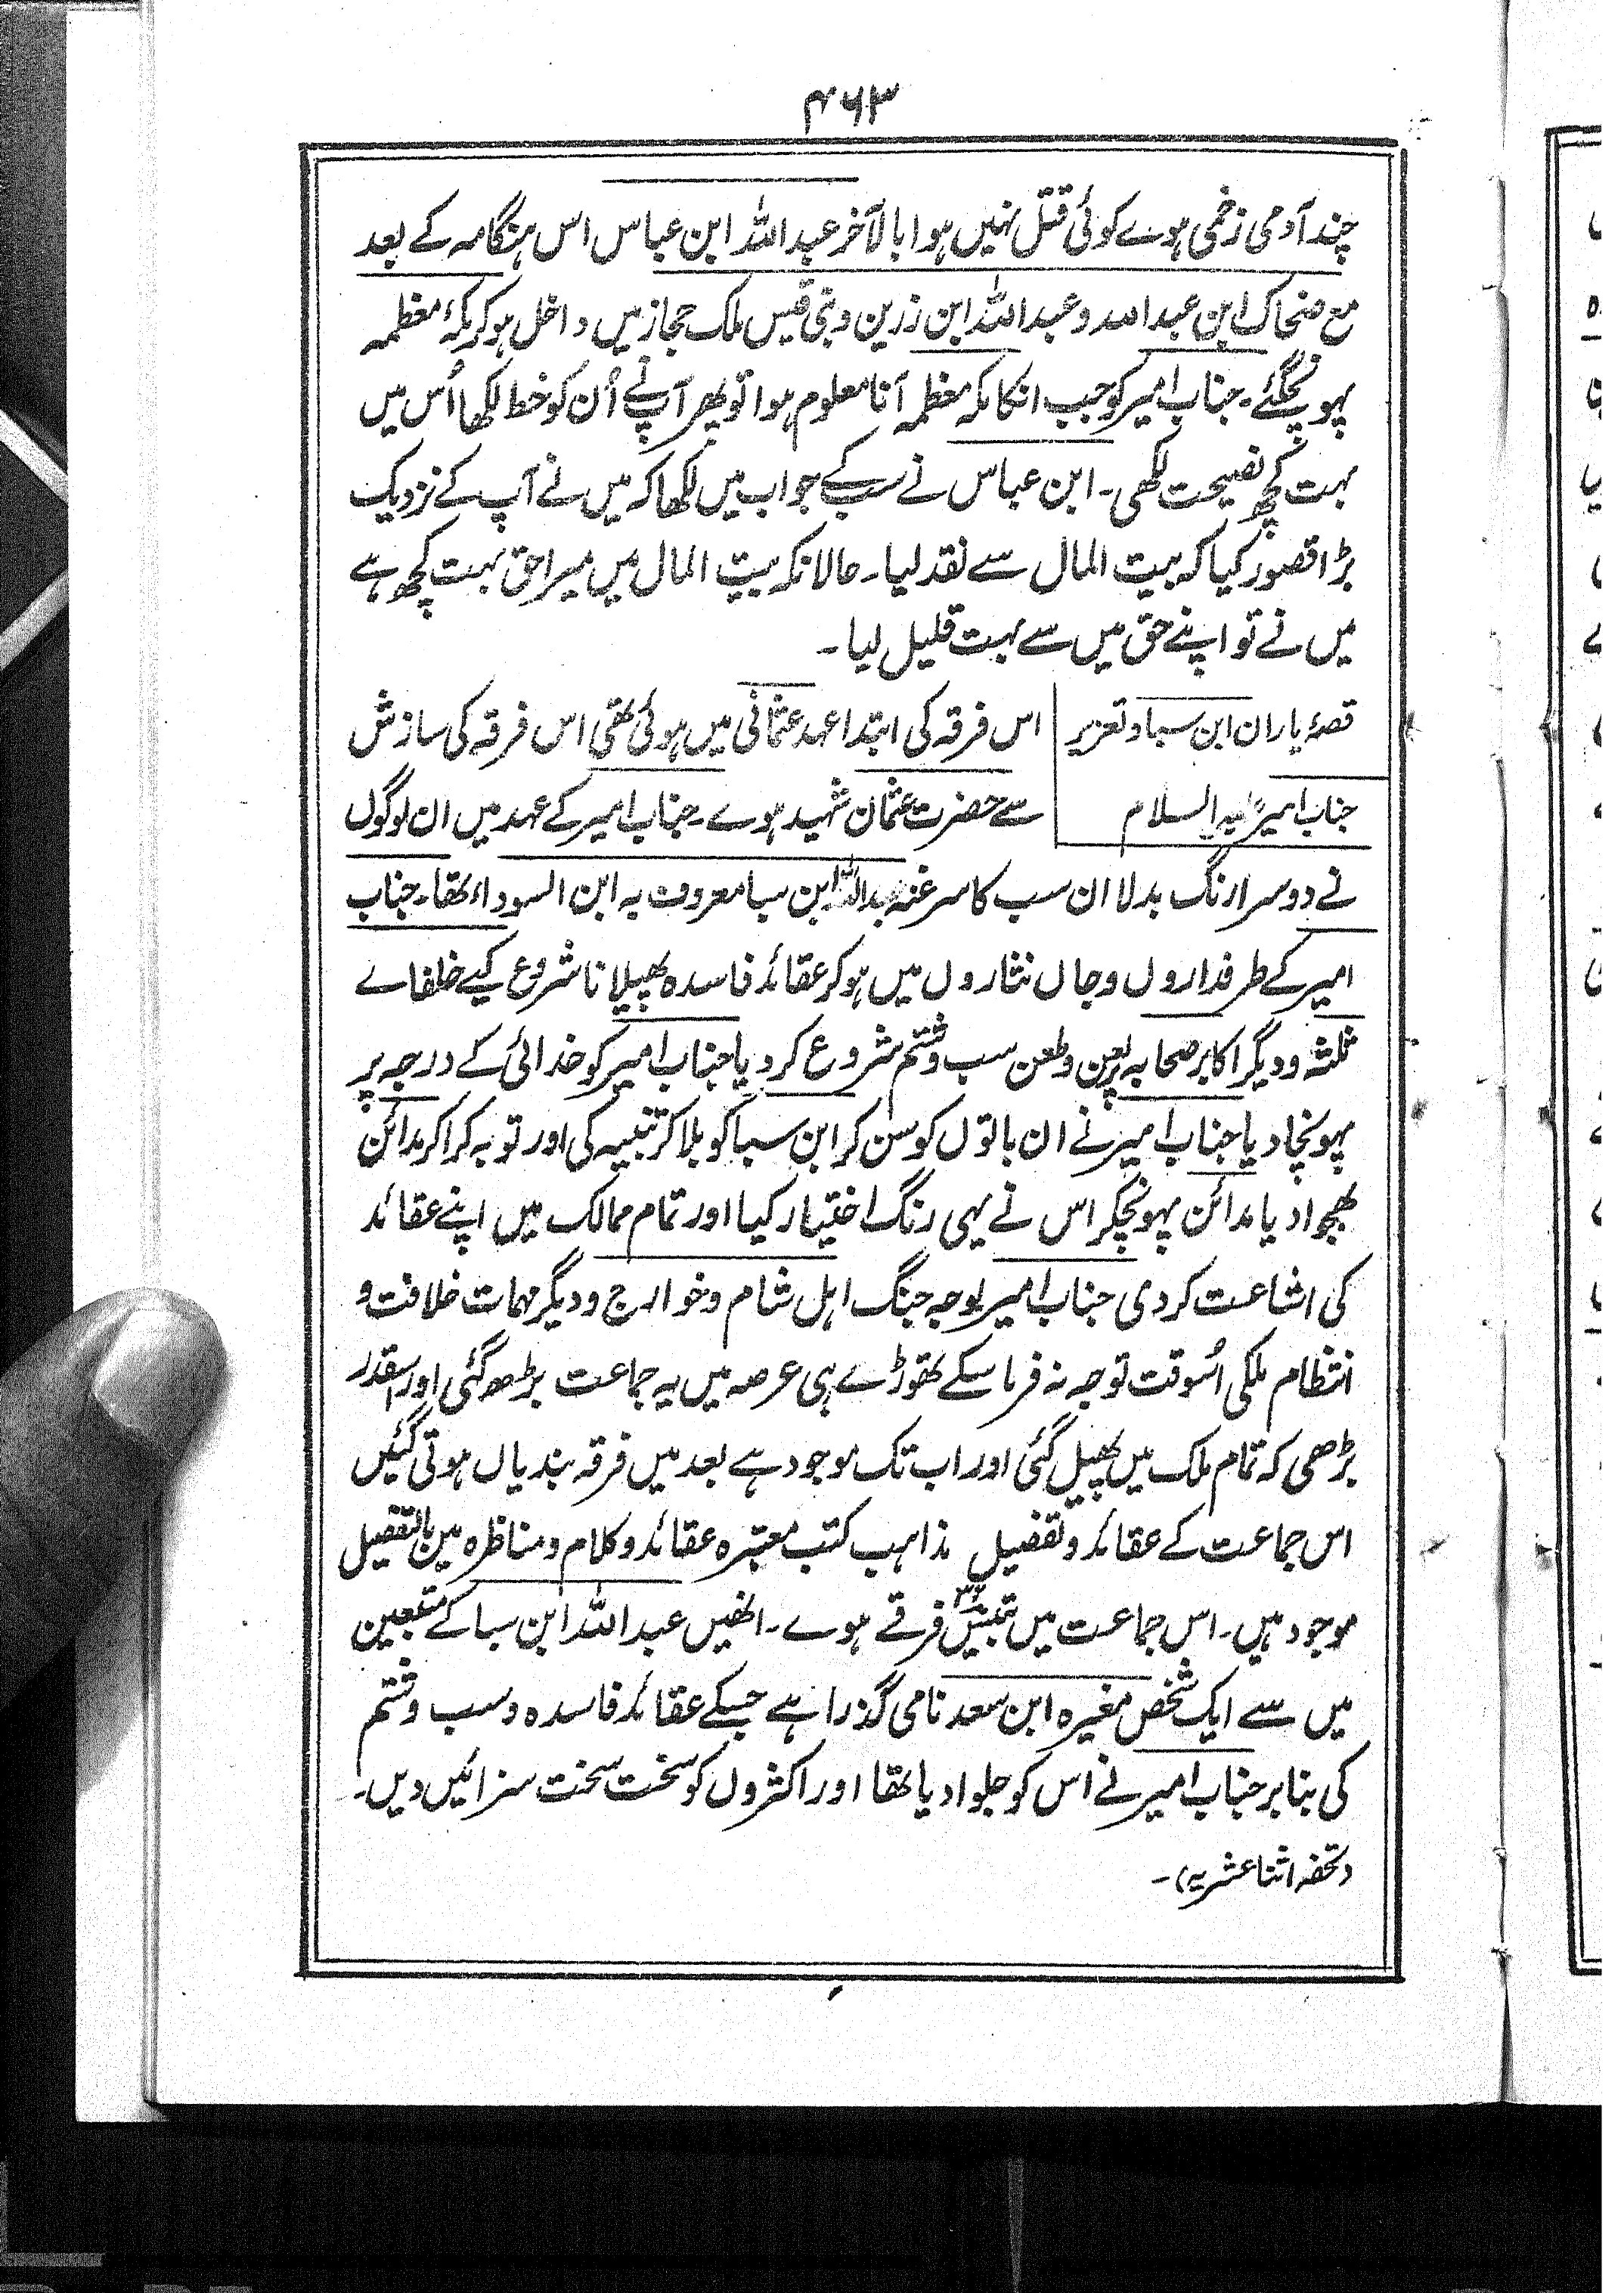 ۴۶۳
چند آدمی زخمی ہوے کوئی قتل نہیں ہوا بالآخر عبد اللہ ابن عباس اس ہنگامہ کے بعد
مع ضحاک ابن عبد اللہ و عبد اللہ ابن زرین و بنی قیس ملک حجاز میں داخل ہو کر مکۂ معظمہ
پہونچگئے۔ جناب امیر کو جب انکا مکہ معظمہ آنا معلوم ہوا تو پھر آپ نے اُن کو خط لکھا اُس میں
بہت کچھ نصیحت لکھی۔ ابن عباس نے سب کے جواب میں لکھا کہ میں نے آپ کے نزدیک
بڑا قصور کیا کہ بیت المال سے نقد لیا۔ حالانکہ بیت المال میں میرا حق بہت کچھ ہے
میں نے تو اپنے حق میں سے بہت قلیل لیا۔
قصۂ یاران ابن سبا و تعزیر
جناب امیر علیہ السلام
اس فرقہ کی ابتدا عہد عثمانی میں ہوئی تھی اس فرقہ کی سازش
سے حضرت عثمان شہید ہوے۔ جناب امیر کے عہد میں ان لوگوں
نے دوسرا رنگ بدلا ان سب کا سرغنہ عبد اللہ ابن سبا معروف بہ ابن السوداء تھا۔ جناب
امیر کے طرفداروں و جاں نثاروں میں ہو کر عقائد فاسدہ پھیلانا شروع کیے خلفاے
ثلثہ و دیگر اکابر صحابہ پر لعن و طعن سب و شتم شروع کر دیا جناب امیر کو خدائی کے درجہ پر
پہونچا دیا جناب امیر نے ان باتوں کو سن کر ابن سبا کو بلا کر تنبیہ کی اور توبہ کرا کر مدائن
بھجوا دیا مدائن پہونچکر اس نے یہی رنگ اختیار کیا اور تمام ممالک میں اپنے عقائد
کی اشاعت کر دی جناب امیر بوجہ جنگ اہل شام و خوارج و دیگر مہمات خلافت و
انتظام ملکی اُسوقت توجہ نہ فرما سکے تھوڑے ہی عرصہ میں یہ جماعت بڑھ گئی اور اسقدر
بڑھی کہ تمام ملک میں پھیل گئی اور اب تک موجود ہے بعد میں فرقہ بندیاں ہوتی گئیں
اس جماعت کے عقائد و تفضیل مذاہب کتب معتبرہ عقائد و کلام و مناظرہ میں بالتفصیل
موجود ہیں۔ اس جماعت میں فرقے ہوے۔ انھیں عبد اللہ ابن سبا کے متبعین
میں سے ایک شخص مغیرہ ابن سعد نامی گذرا ہے جسکے عقائد فاسدہ و سب و شتم
کی بنا پر جناب امیر نے اس کو جلوا دیا تھا اور اکثروں کو سخت سخت سزائیں دیں۔
(تحفہ اثنا عشریہ)۔